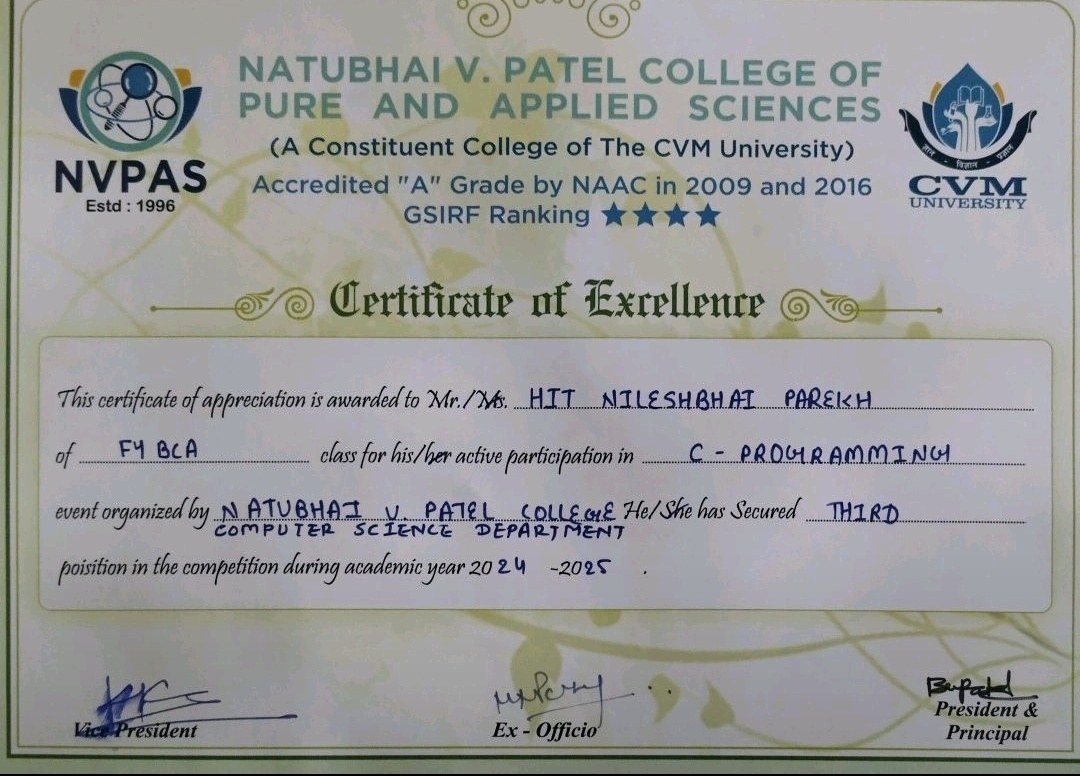 NATUBHAI V. PATEL COLLEGE OF
PURE AND APPLIED SCIENCES
(A Constituent College of The CVM University)
Accredited "A" Grade by NAAC in 2009 and 2016
GSIRF Ranking ★★★★
NVPAS
Estd : 1996
ज्ञान - विज्ञान - प्रज्ञान
CVM
UNIVERSITY
Certificate of Excellence
This certificate of appreciation is awarded to Mr./Ms. HIT NILESHBHAI PAREKH
of FY BCA class for his/her active participation in C - PROGRAMMING
event organized by NATUBHAI V. PATEL COLLEGE He/She has Secured THIRD
COMPUTER SCIENCE DEPARTMENT
poisition in the competition during academic year 2024 -2025 .
Vice President
Ex - Officio
President &
Principal